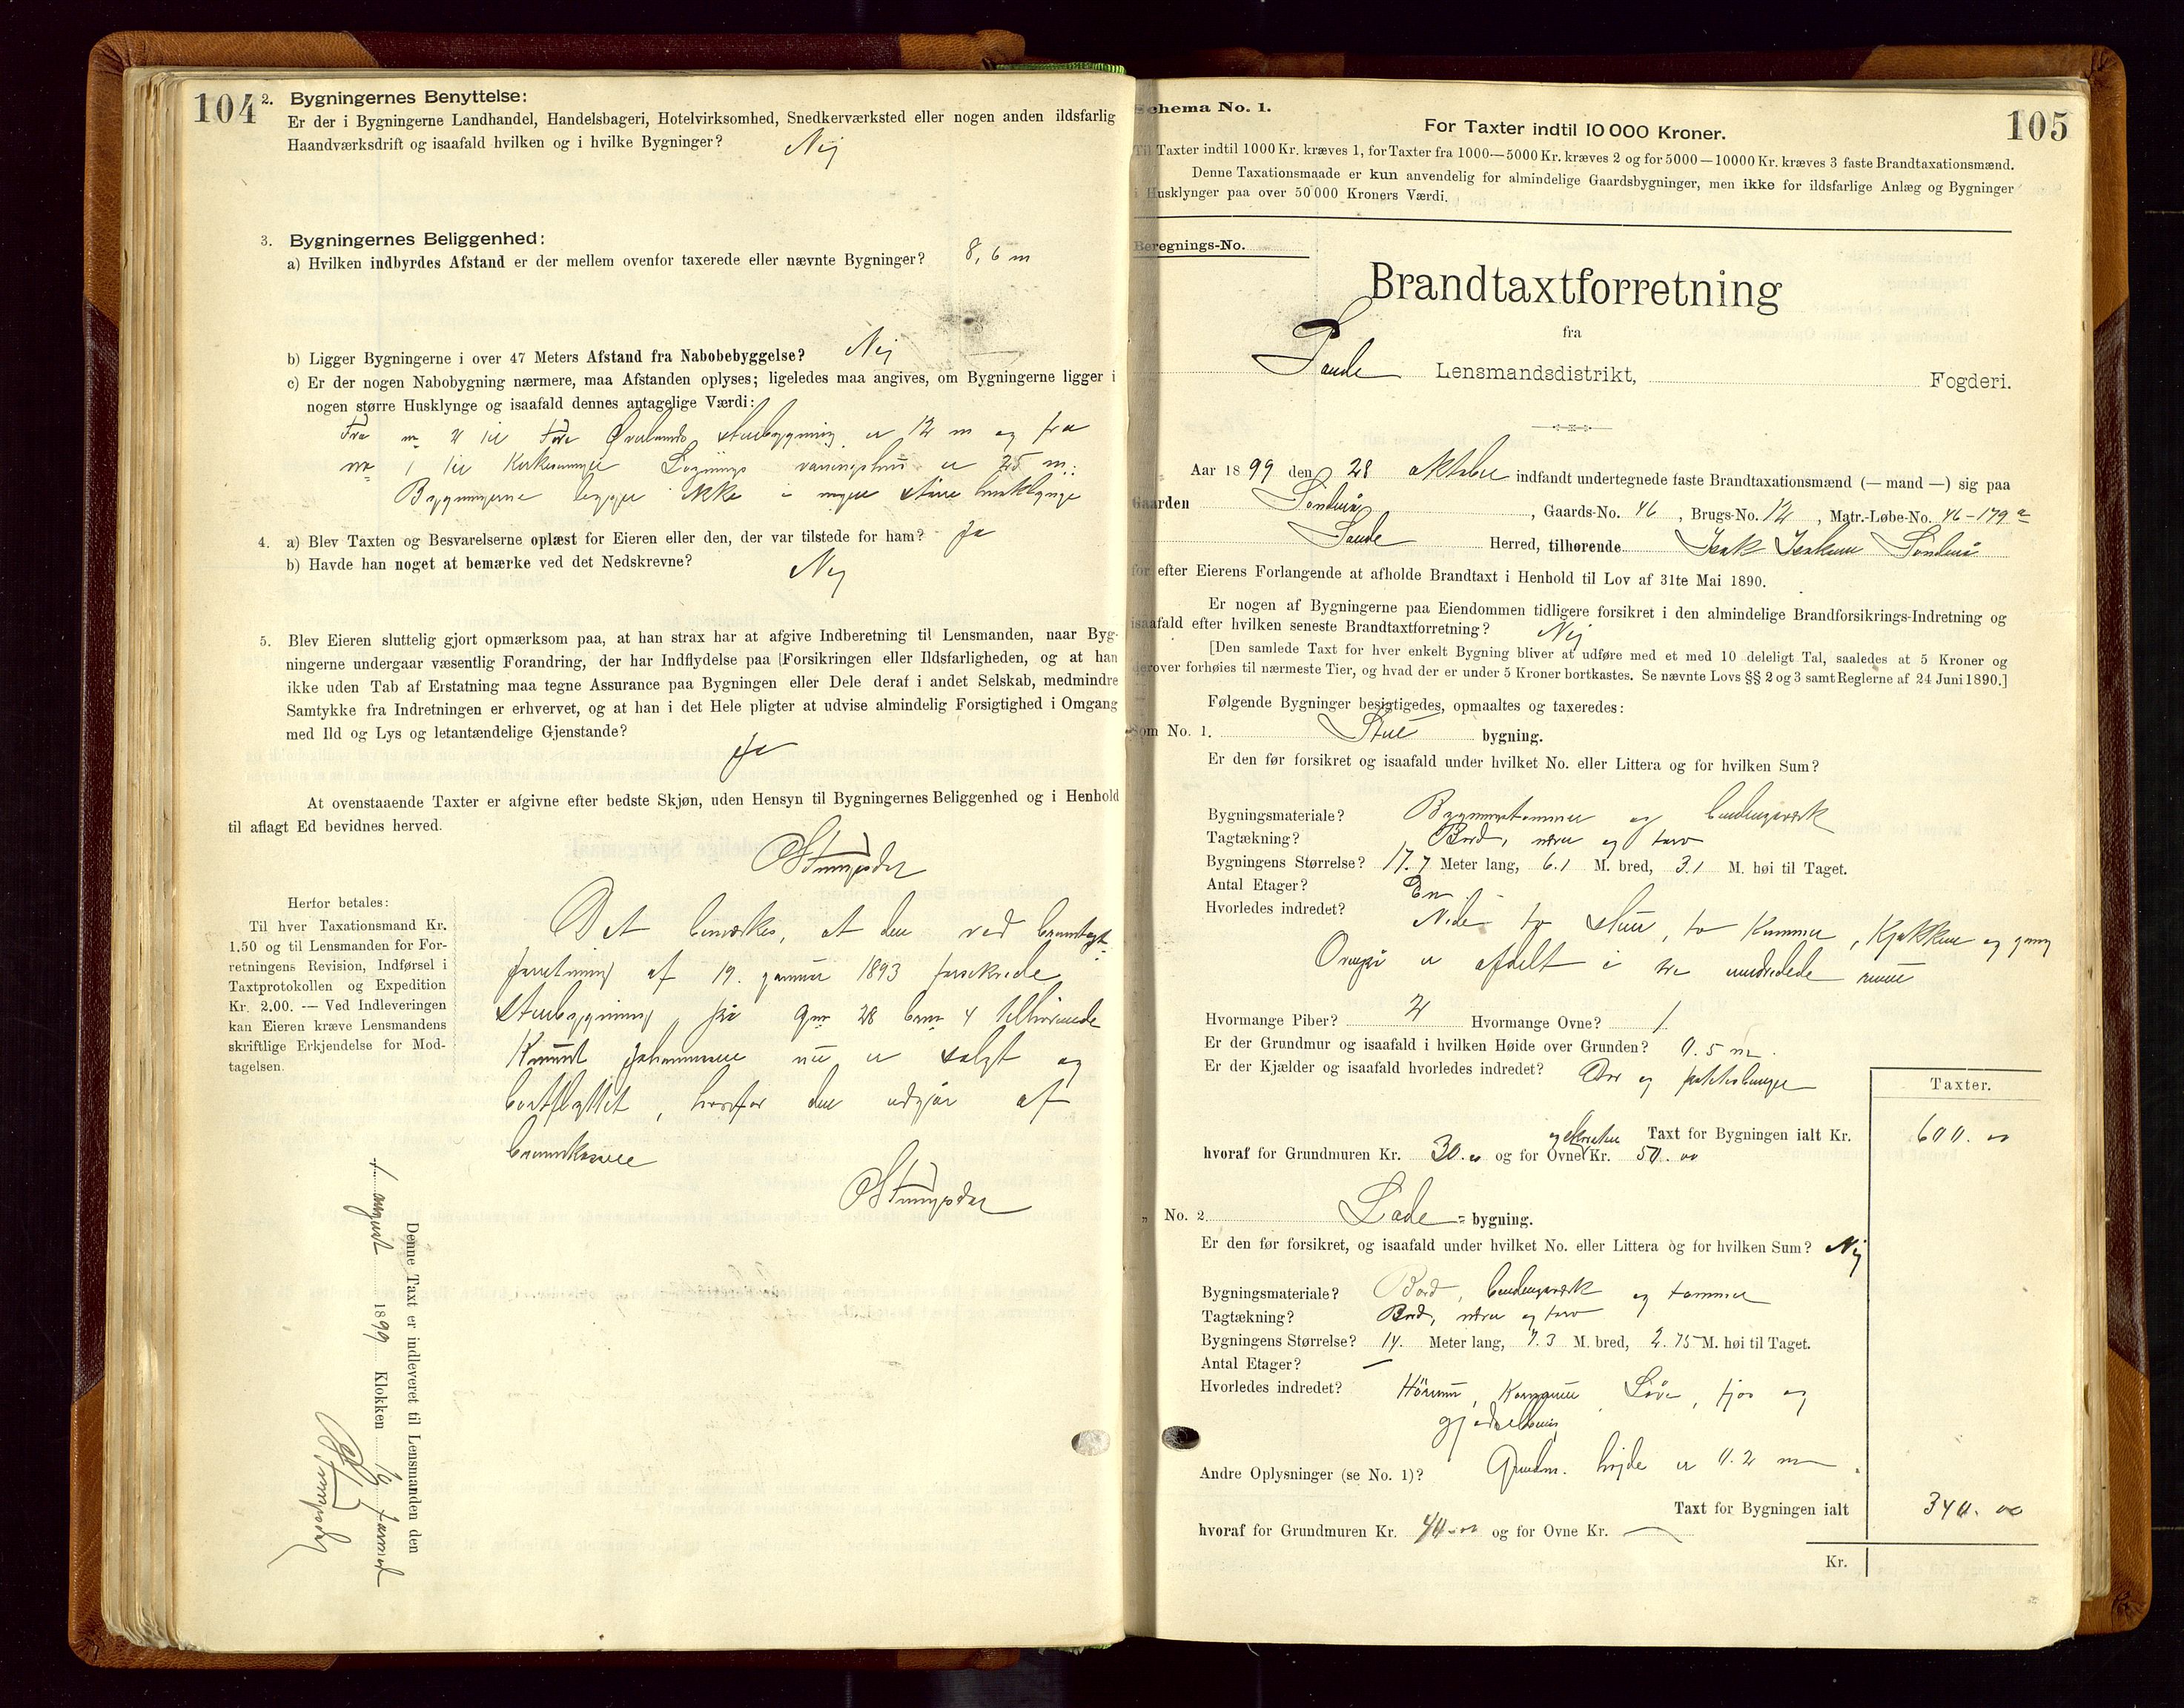 104
2. Bygningernes Benyttelse:
Er der i Bygningerne Landhandel, Handelsbageri, Hotelvirksomhed, Snedkerværksted eller nogen anden ildsfarlig
Haandværksdrift og isaafald hvilken og i hvilke Bygninger? Nej
3. Bygningernes Beliggenhed:
a) Hvilken indbyrdes Afstand er der mellem ovenfor taxerede eller nævnte Bygninger? 8,6 m
b) Ligger Bygningerne i over 47 Meters Afstand fra Nabobebyggelse? Nej
c) Er der nogen Nabobygning nærmere, maa Afstanden oplyses; ligeledes maa angives, om Bygningerne ligger i
nogen større Husklynge og isaafald dennes antagelige Værdi:
Fra no 2 til Tore stuebygning er 12 m og fra
no 1 til er 25 m.
Bygningerne ligger ikke i nogen større husklynge
4. a) Blev Taxten og Besvarelserne oplæst for Eieren eller den, der var tilstede for ham? Ja
b) Havde han noget at bemærke ved det Nedskrevne? Nej
5. Blev Eieren sluttelig gjort opmærksom paa, at han strax har at afgive Indberetning til Lensmanden, naar Byg-
ningerne undergaar væsentlig Forandring, der har Indflydelse paa [Forsikringen eller Ildsfarligheden, og at han
ikke uden Tab af Erstatning maa tegne Assurance paa Bygningen eller Dele deraf i andet Selskab, medmindre
Samtykke fra Indretningen er erhvervet, og at han i det Hele pligter at udvise almindelig Forsigtighed i Omgang
med Ild og Lys og letantændelige Gjenstande?
Ja
At ovenstaaende Taxter er afgivne efter bedste Skjøn, uden Hensyn til Bygningernes Beliggenhed og i Henhold
til aflagt Ed bevidnes herved.
Herfor betales:
Til hver Taxationsmand Kr.
1.50 og til Lensmanden for For-
retningens Revision, Indførsel i
Taxtprotokollen og Expedition
Kr. 2.00. — Ved Indleveringen
kan Eieren kræve Lensmandens
skriftlige Erkjendelse for Mod-
tagelsen.
Det bemærkes, at den ved brandtaxt-
forretning af 19. januar 1893 forsikrede
stuebygning på gnr 28 bnr 4 tilhørende
Knud Johannesen nu er solgt og
bortflyttet, hvorfor den udgår af
brandkassen
Denne Taxt er indleveret til Lensmanden den
1 august 1899 Klokken 10 formid
105
Schema No. 1.
For Taxter indtil 10 000 Kroner.
Til Taxter indtil 1000 Kr. kræves 1, for Taxter fra 1000—5000 Kr. kræves 2 og for 5000—10000 Kr. kræves 3 faste Brandtaxationsmænd.
Denne Taxationsmaade er kun anvendelig for almindelige Gaardsbygninger, men ikke for ildsfarlige Anlæg og Bygninger
i Husklynger paa over 50 000 Kroners Værdi.
Beregnings-No.
Brandtaxtforretning
fra
Sande Lensmandsdistrikt, Fogderi.
Aar 1899 den 28 oktober indfandt undertegnede faste Brandtaxationsmænd (— mand —) sig paa
Gaarden Söndenå, Gaards-No. 46, Brugs-No. 12, Matr.-Løbe-No. 46-179a
Sande Herred, tilhørende Isak Isaksen Söndenå
for efter Eierens Forlangende at afholde Brandtaxt i Henhold til Lov af 31te Mai 1890.
Er nogen af Bygningerne paa Eiendommen tidligere forsikret i den almindelige Brandforsikrings-Indretning og
isaafald efter hvilken seneste Brandtaxtforretning? Nej
[Den samlede Taxt for hver enkelt Bygning bliver at udføre med et med 10 deleligt Tal, saaledes at 5 Kroner og
derover forhøies til nærmeste Tier, og hvad der er under 5 Kroner bortkastes. Se nævnte Lovs §§ 2 og 3 samt Reglerne af 24 Juni 1890.]
Følgende Bygninger besigtigedes, opmaaltes og taxeredes:
Som No. 1. Stue bygning.
Er den før forsikret og isaafald under hvilket No. eller Littera og for hvilken Sum?
Bygningsmateriale? Bygningstømmer og bindingsværk
Tagtækning? Bord, næver og torv
Bygningens Størrelse? 17.7 Meter lang, 6.1 M. bred, 3.1 M. høi til Taget.
Antal Etager? En
Hvorledes indredet? Nede to stuer, to kammer, kjøkken og gang
Ovenpå er afdelt i tre uindredede rum
Hvormange Piber? 2 Hvormange Ovne? 1
Er der Grundmur og isaafald i hvilken Høide over Grunden? 0.5 m.
Er der Kjælder og isaafald hvorledes indredet? Dør og
Taxter.
Taxt for Bygningen ialt Kr. 600.00
hvoraf for Grundmuren Kr. 30.00 og for Ovne og skorsten Kr. 50.00
„ No. 2. Lade-bygning.
Er den før forsikret, og isaafald under hvilket No. eller Littera og for hvilken Sum? Nej
Bygningsmateriale? Bord, bindingsværk og tømmer
Tagtækning? Bord, næver og torv
Bygningens Størrelse? 14. Meter lang, 7.3 M. bred, 2.75 M. høi til Taget.
Antal Etager? —
Hvorledes indredet? Hörum, Kornrum, Låve, fjøs og
gjødselhus
Andre Oplysninger (se No. 1)? Grundm. højde er 0.2 m.
Taxt for Bygningen ialt 340.00
hvoraf for Grundmuren Kr. 40.00 og for Ovne Kr. —
Kr.